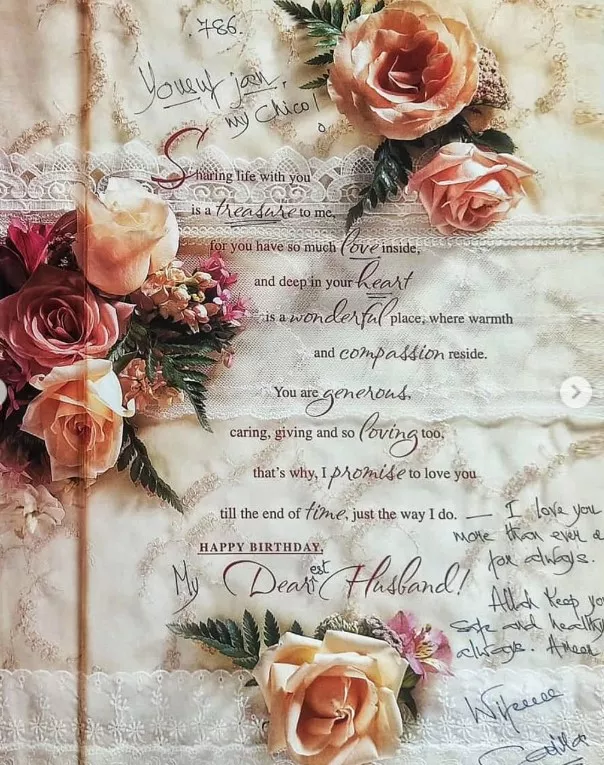 786.
Yousuf jaan,
my Chico!
Sharing life with you
is a treasure to me,
for you have so much love inside,
and deep in your heart
is a wonderful place, where warmth
and compassion reside.
You are generous,
caring, giving and so loving too,
that's why, I promise to love you
till the end of time, just the way I do. — I love you
more than ever &
for always.
HAPPY BIRTHDAY,
My Dearest Husband!
Allah Keep you
safe and healthy
always. Ameen
Wifeeee